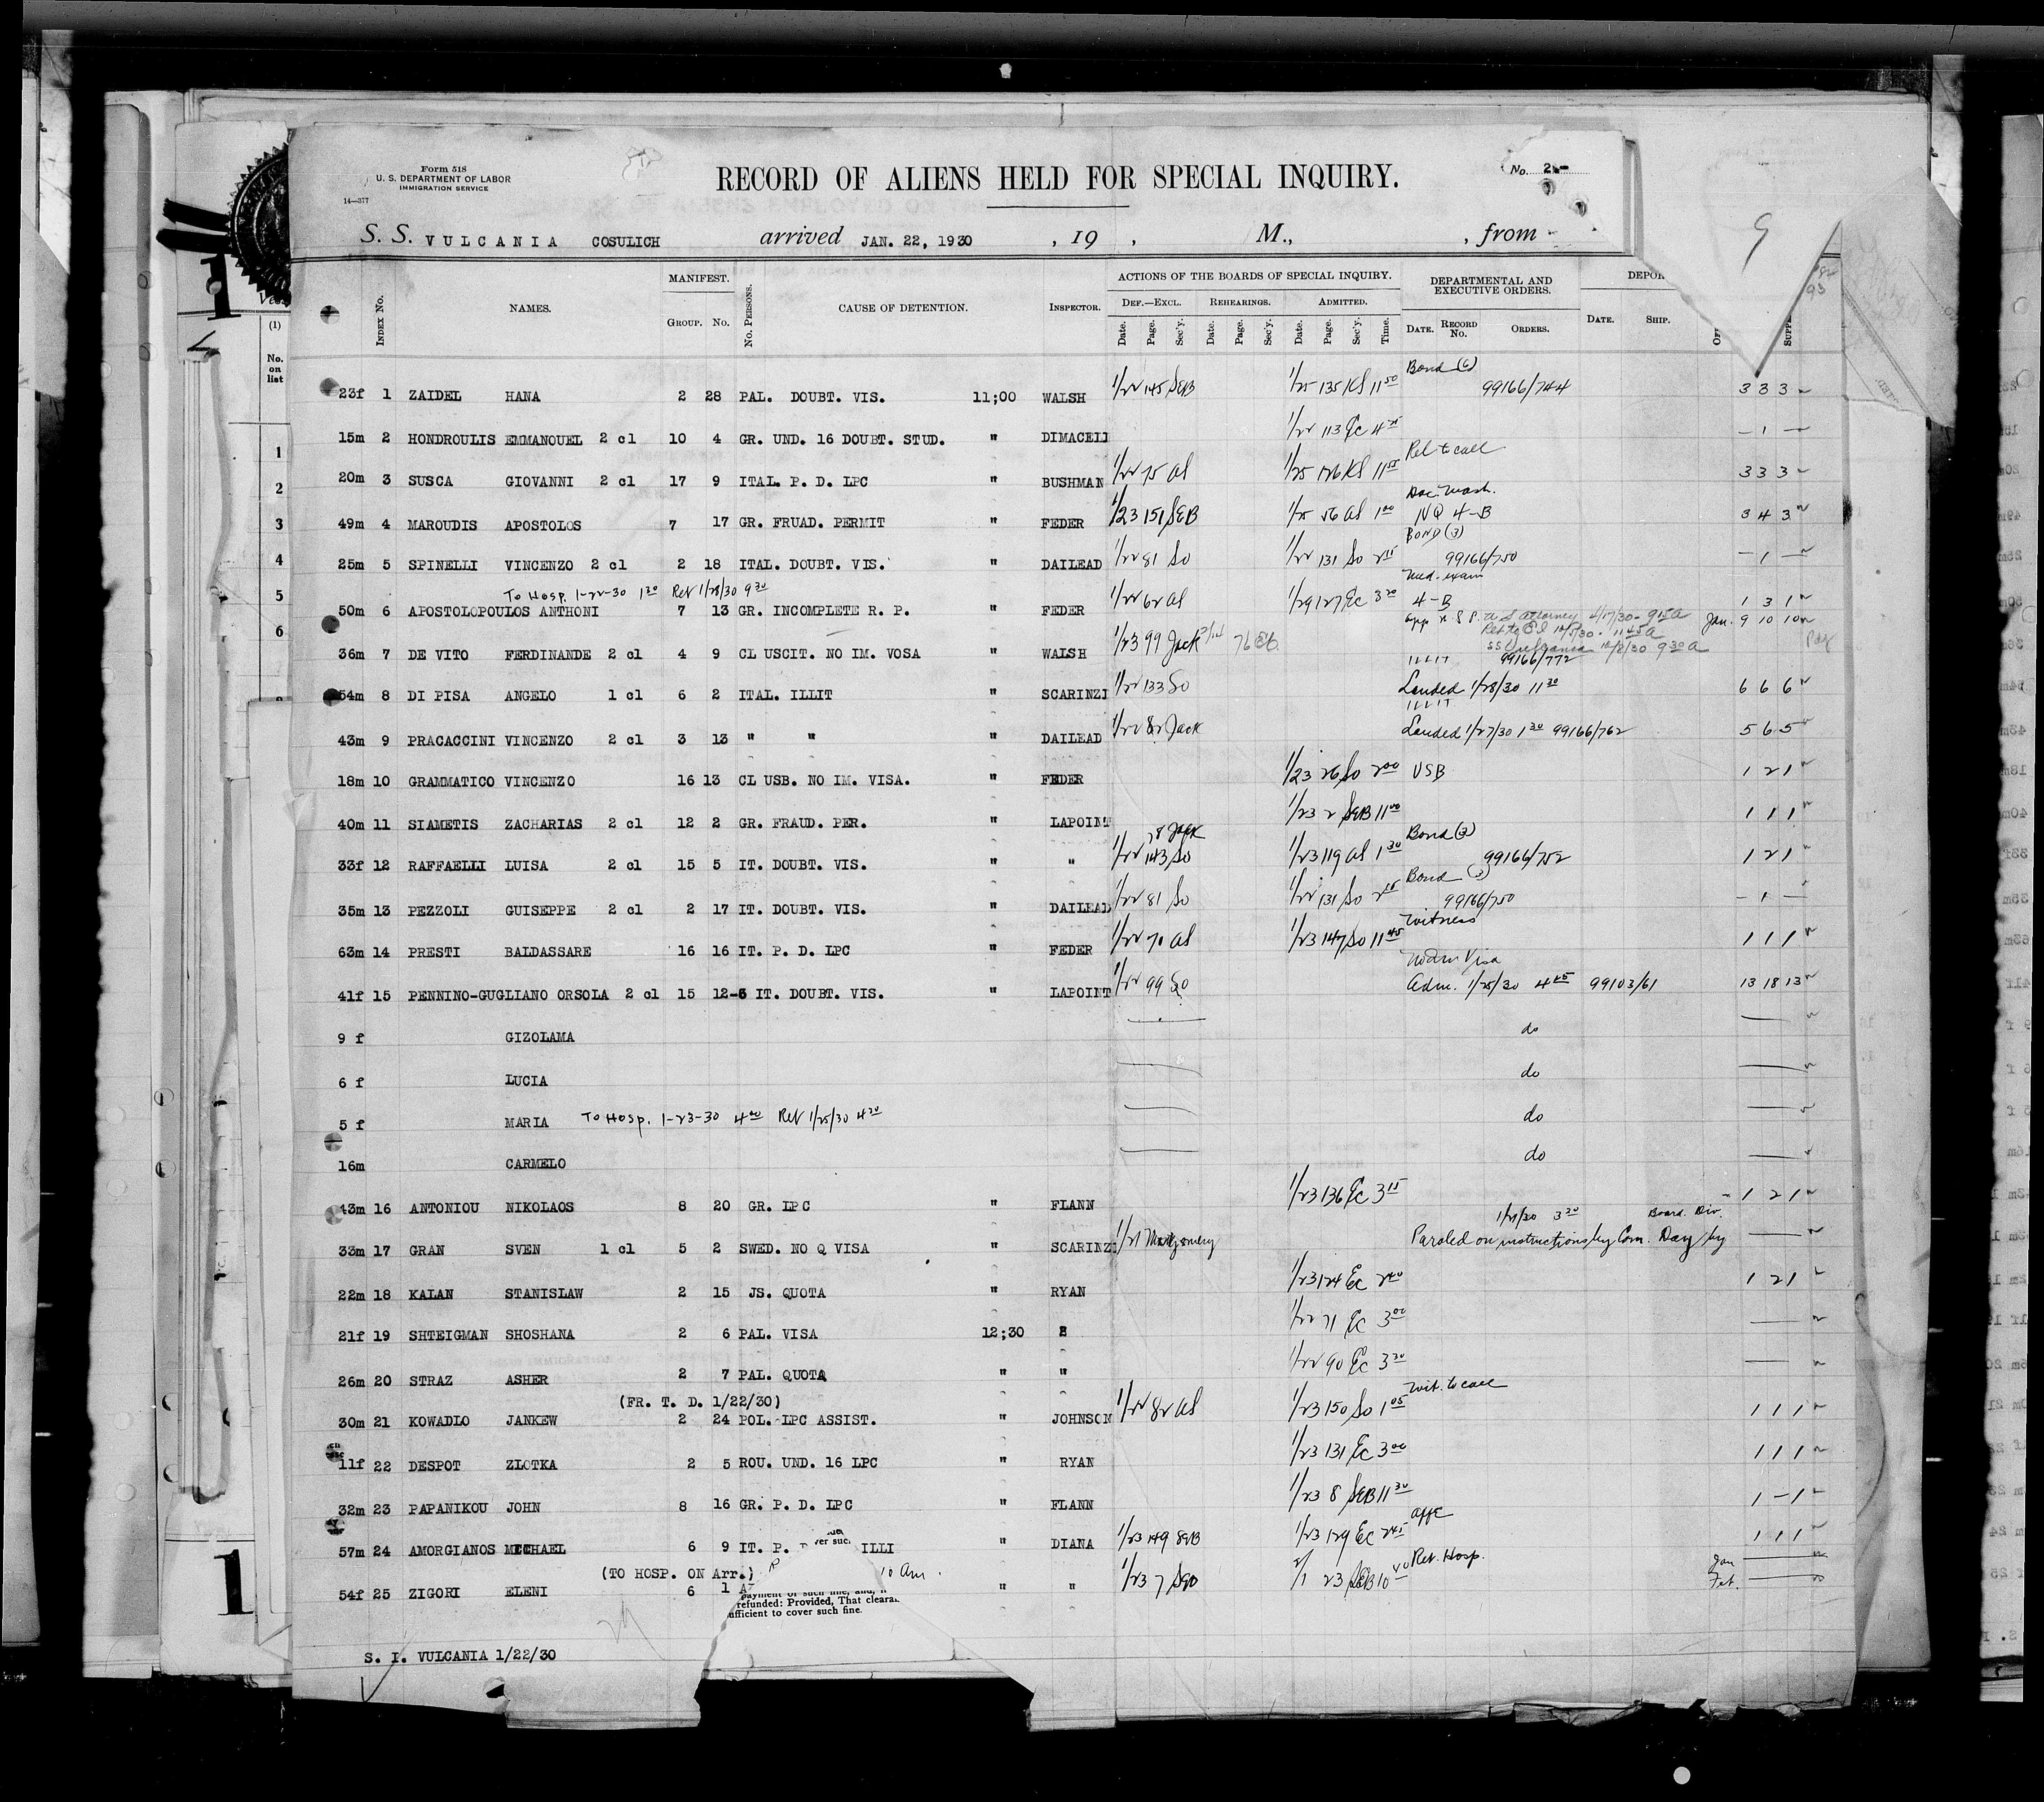 Form 518
U. S. DEPARTMENT OF LABOR
IMMIGRATION SERVICE
14—377
RECORD OF ALIENS HELD FOR SPECIAL INQUIRY.
No. 2-
S. S. VULCANIA COSULICH arrived JAN. 22, 1930 , 19 , M., , from
9
MANIFEST. ACTIONS OF THE BOARDS OF SPECIAL INQUIRY. DEPARTMENTAL AND EXECUTIVE ORDERS. DEPOR
Index No. NAMES. GROUP. No. No. PERSONS. CAUSE OF DETENTION. INSPECTOR. DEF.—EXCL. REHEARINGS. ADMITTED.
Date. Page. Sec'y. Date. Page. Sec'y. Date. Page. Sec'y. Time. DATE. RECORD No. ORDERS. DATE. SHIP.
(1)
No. on list
1
2
3
4
5
6
Bond (6)
23f 1 ZAIDEL HANA 2 28 PAL. DOUBT. VIS. 11;00 WALSH 1/22 145 SEB 1/25 135 KS 11 50 99166/744 3 3 3
15m 2 HONDROULIS EMMANOUEL 2 cl 10 4 GR. UND. 16 DOUBT. STUD. " DIMACELI 1/22 113 Ec 4 — 1 —
Rel to call
20m 3 SUSCA GIOVANNI 2 cl 17 9 ITAL. P. D. LPC " BUSHMAN 1/22 75 al 1/25 126 KS 11 55 3 3 3
Doc. Wash.
49m 4 MAROUDIS APOSTOLOS 7 17 GR. FRUAD. PERMIT " FEDER 1/23 151 SEB 1/25 56 al 1 00 NQ 4-B 3 4 3
BOND (3)
25m 5 SPINELLI VINCENZO 2 cl 2 18 ITAL. DOUBT. VIS. " DAILEAD 1/22 81 So 1/22 131 So 2 15 99166/750 — 1 —
To Hosp. 1-22-30 1 30 Ret 1/28/30 9 30 med. exam
50m 6 APOSTOLOPOULOS ANTHONI 7 13 GR. INCOMPLETE R. P. " FEDER 1/22 62 al 1/29 127 Ec 3 20 4-B 1 3 1
U S Attorney 4/17/30 - 9 15 A Jan. 9 10 10
36m 7 DE VITO FERDINANDE 2 cl 4 9 CL USCIT. NO IM. VOSA " WALSH 1/23 99 Jack 2/14 76
SS Vulcania 12/8/30 9 30 a
99166/772
54m 8 DI PISA ANGELO 1 cl 6 2 ITAL. ILLIT " SCARINZI 1/22 133 So Landed 1/28/30 11 30 6 6 6
43m 9 PRACACCINI VINCENZO 2 cl 3 13 " " " DAILEAD 1/22 82 Jack Landed 1/27/30 1 30 99166/762 5 6 5
18m 10 GRAMMATICO VINCENZO 16 13 CL USB. NO IM. VISA. " FEDER 1/23 26 So 2 00 USB 1 2 1
40m 11 SIAMETIS ZACHARIAS 2 cl 12 2 GR. FRAUD. PER. " LAPOINT 1/23 2 SEB 11 00 1 1 1
78 Jack Bond (3)
33f 12 RAFFAELLI LUISA 2 cl 15 5 IT. DOUBT. VIS. " " 1/22 143 So 1/23 119 al 1 30 99166/752 1 2 1
Bond (3)
35m 13 PEZZOLI GUISEPPE 2 cl 2 17 IT. DOUBT. VIS. " DAILEAD 1/22 81 So 1/22 131 So 2 15 99166/750 — 1 —
Witness
63m 14 PRESTI BALDASSARE 16 16 IT. P. D. LPC " FEDER 1/22 70 al 1/23 147 So 11 45 1 1 1
41f 15 PENNINO-GUGLIANO ORSOLA 2 cl 15 12-6 IT. DOUBT. VIS. " LAPOINT 1/22 99 So Adm. 1/25/30 4 45 99103/61 13 18 13
9 f GIZOLAMA do
6 f LUCIA do
5 f MARIA To Hosp. 1-23-30 4 00 Ret 1/25/30 4 30 do
16m CARMELO do
43m 16 ANTONIOU NIKOLAOS 8 20 GR. LPC " FLANN 1/23 136 Ec 3 15 1 2 1
3 30 Board. Div.
33m 17 GRAN SVEN 1 cl 5 2 SWED. NO Q VISA " SCARINZI Montgomery Paroled on instructions by Com. Day by
22m 18 KALAN STANISLAW 2 15 JS. QUOTA " RYAN 1/23 124 Ec 2 40 1 2 1
21f 19 SHTEIGMAN SHOSHANA 2 6 PAL. VISA 12;30 " 1/22 71 Ec 3 00
26m 20 STRAZ ASHER 2 7 PAL. QUOTA " " 1/22 90 Ec 3 30
(FR. T. D. 1/22/30) Wit. to call
30m 21 KOWADLO JANKEW 2 24 POL. LPC ASSIST. " JOHNSON 1/22 82 al 1/23 150 So 1 05 1 1 1
11f 22 DESPOT ZLOTKA 2 5 ROU. UND. 16 LPC " RYAN 1/23 131 Ec 3 00 1 1 1
32m 23 PAPANIKOU JOHN 8 16 GR. P. D. LPC " FLANN 1/23 8 SEB 11 30 1 — 1
57m 24 AMORGIANOS MICHAEL 6 9 IT. P. ILLI " DIANA 1/23 149 SEB 1/23 129 Ec 2 45 1 1 1
(TO HOSP. ON Arr.) 10 Am. Ret. Hosp. Jan
54f 25 ZIGORI ELENI 6 1 " " 1/23 7 2/1 23 SEB 10 Feb.
payment of such fine, and,
refunded: Provided, That cleara
ufficient to cover such fine.
S. I. VULCANIA 1/22/30
1